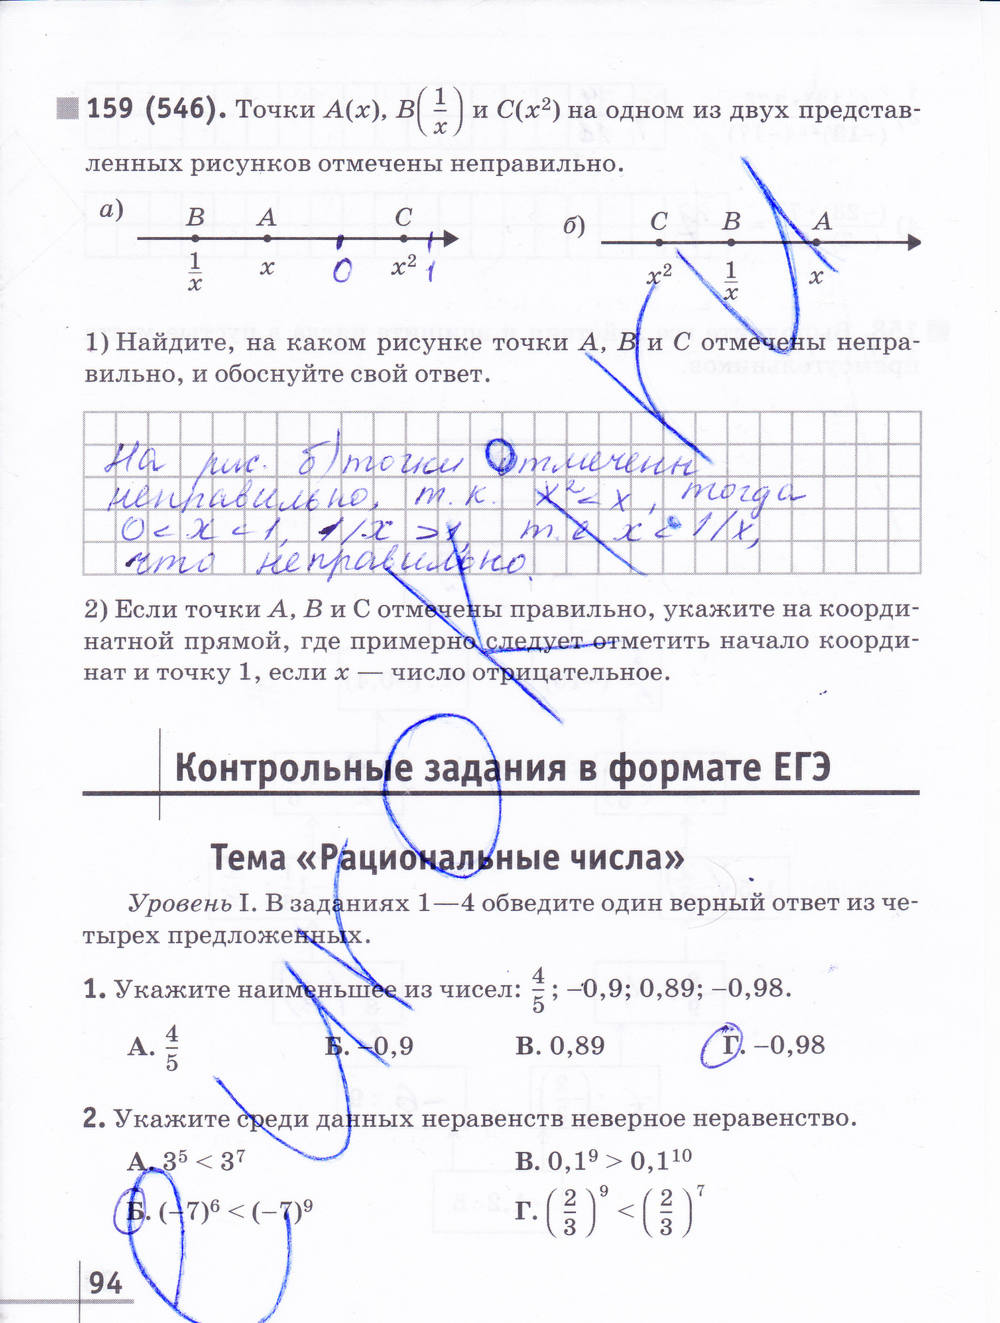 159 (546). Точки A(x), B(1/x) и C(x²) на одном из двух представ-
ленных рисунков отмечены неправильно.
а) B A C
1/x x 0 x² 1
б) C B A
x² 1/x x
1) Найдите, на каком рисунке точки A, B и C отмечены непра-
вильно, и обоснуйте свой ответ.
На рис. б) точки отмечены
неправильно, т.к. x² < x, тогда
0 < x < 1, 1/x > 1, т.е x < 1/x,
что неправильно.
2) Если точки A, B и C отмечены правильно, укажите на коорди-
натной прямой, где примерно следует отметить начало коорди-
нат и точку 1, если x — число отрицательное.
Контрольные задания в формате ЕГЭ
Тема «Рациональные числа»
Уровень I. В заданиях 1—4 обведите один верный ответ из че-
тырех предложенных.
1. Укажите наименьшее из чисел: 4/5; −0,9; 0,89; −0,98.
А. 4/5 Б. −0,9 В. 0,89 Г. −0,98
2. Укажите среди данных неравенств неверное неравенство.
А. 3⁵ < 3⁷ В. 0,1⁹ > 0,1¹⁰
Б. (−7)⁶ < (−7)⁹ Г. (2/3)⁹ < (2/3)⁷
94